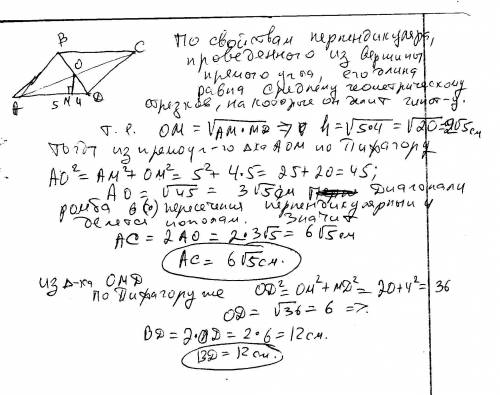 B C
O
A 5 M 4 D
По свойствам перпендикуляра,
проведенного из вершины
прямого угла, его длина
равна среднему геометрическому
отрезков, на которые он делит гипот-у.
т.е. OM = √AM·MD => h = √5·4 = √20 = 2√5 см
Тогда из прямоуг-го Δка AOM по Пифагору
AO² = AM² + OM² = 5² + 4·5 = 25 + 20 = 45;
AO = √45 = 3√5 см Диагонали
ромба в (·) пересечения перпендикулярны и
делятся пополам. Значит
AC = 2AO = 2·3√5 = 6√5 см
AC = 6√5 см.
из Δ-ка OMD
по Пифагору же OD² = OM² + MD² = 20 + 4² = 36
OD = √36 = 6 =>
BD = 2·OD = 2·6 = 12 см.
BD = 12 см.